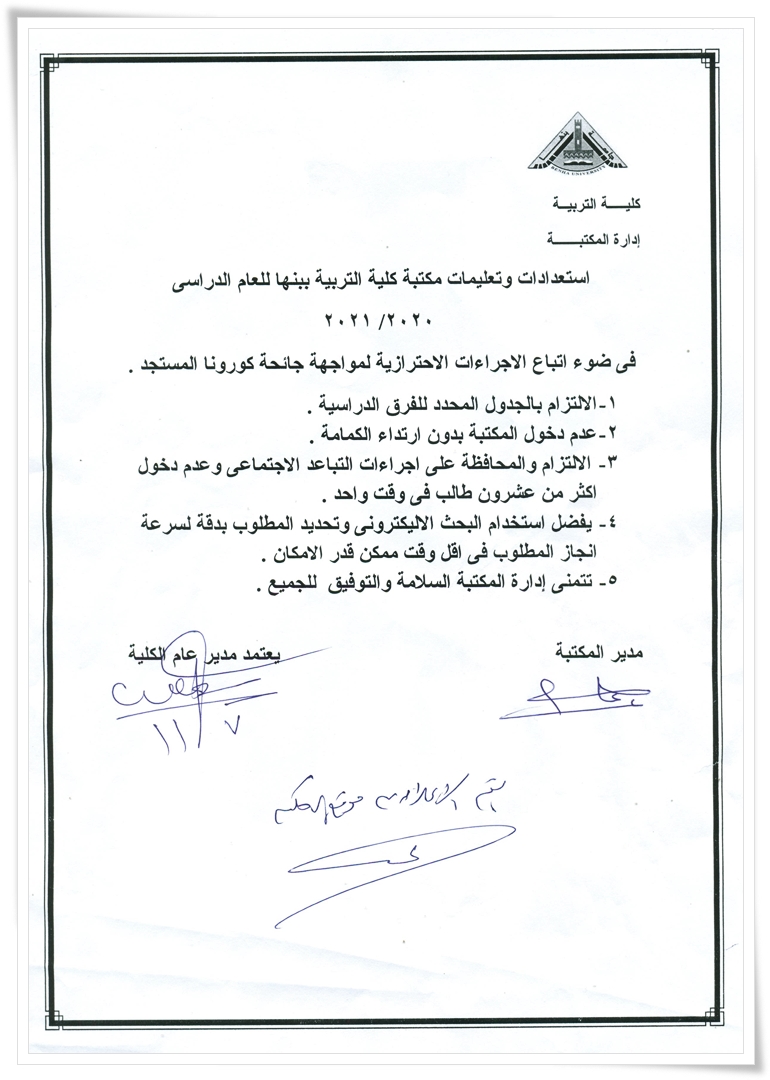 جامعة بنها
BENHA UNIVERSITY
كليـــة التربيــة
إدارة المكتبـــــة
استعدادات وتعليمات مكتبة كلية التربية ببنها للعام الدراسى
٢٠٢٠/ ٢٠٢١
فى ضوء اتباع الاجراءات الاحترازية لمواجهة جائحة كورونا المستجد .
١- الالتزام بالجدول المحدد للفرق الدراسية .
٢- عدم دخول المكتبة بدون ارتداء الكمامة .
٣- الالتزام والمحافظة على اجراءات التباعد الاجتماعى وعدم دخول
اكثر من عشرون طالب فى وقت واحد .
٤- يفضل استخدام البحث الاليكترونى وتحديد المطلوب بدقة لسرعة
انجاز المطلوب فى اقل وقت ممكن قدر الامكان .
٥- تتمنى إدارة المكتبة السلامة والتوفيق للجميع .
مدير المكتبة
يعتمد مدير عام الكلية
١١/٧